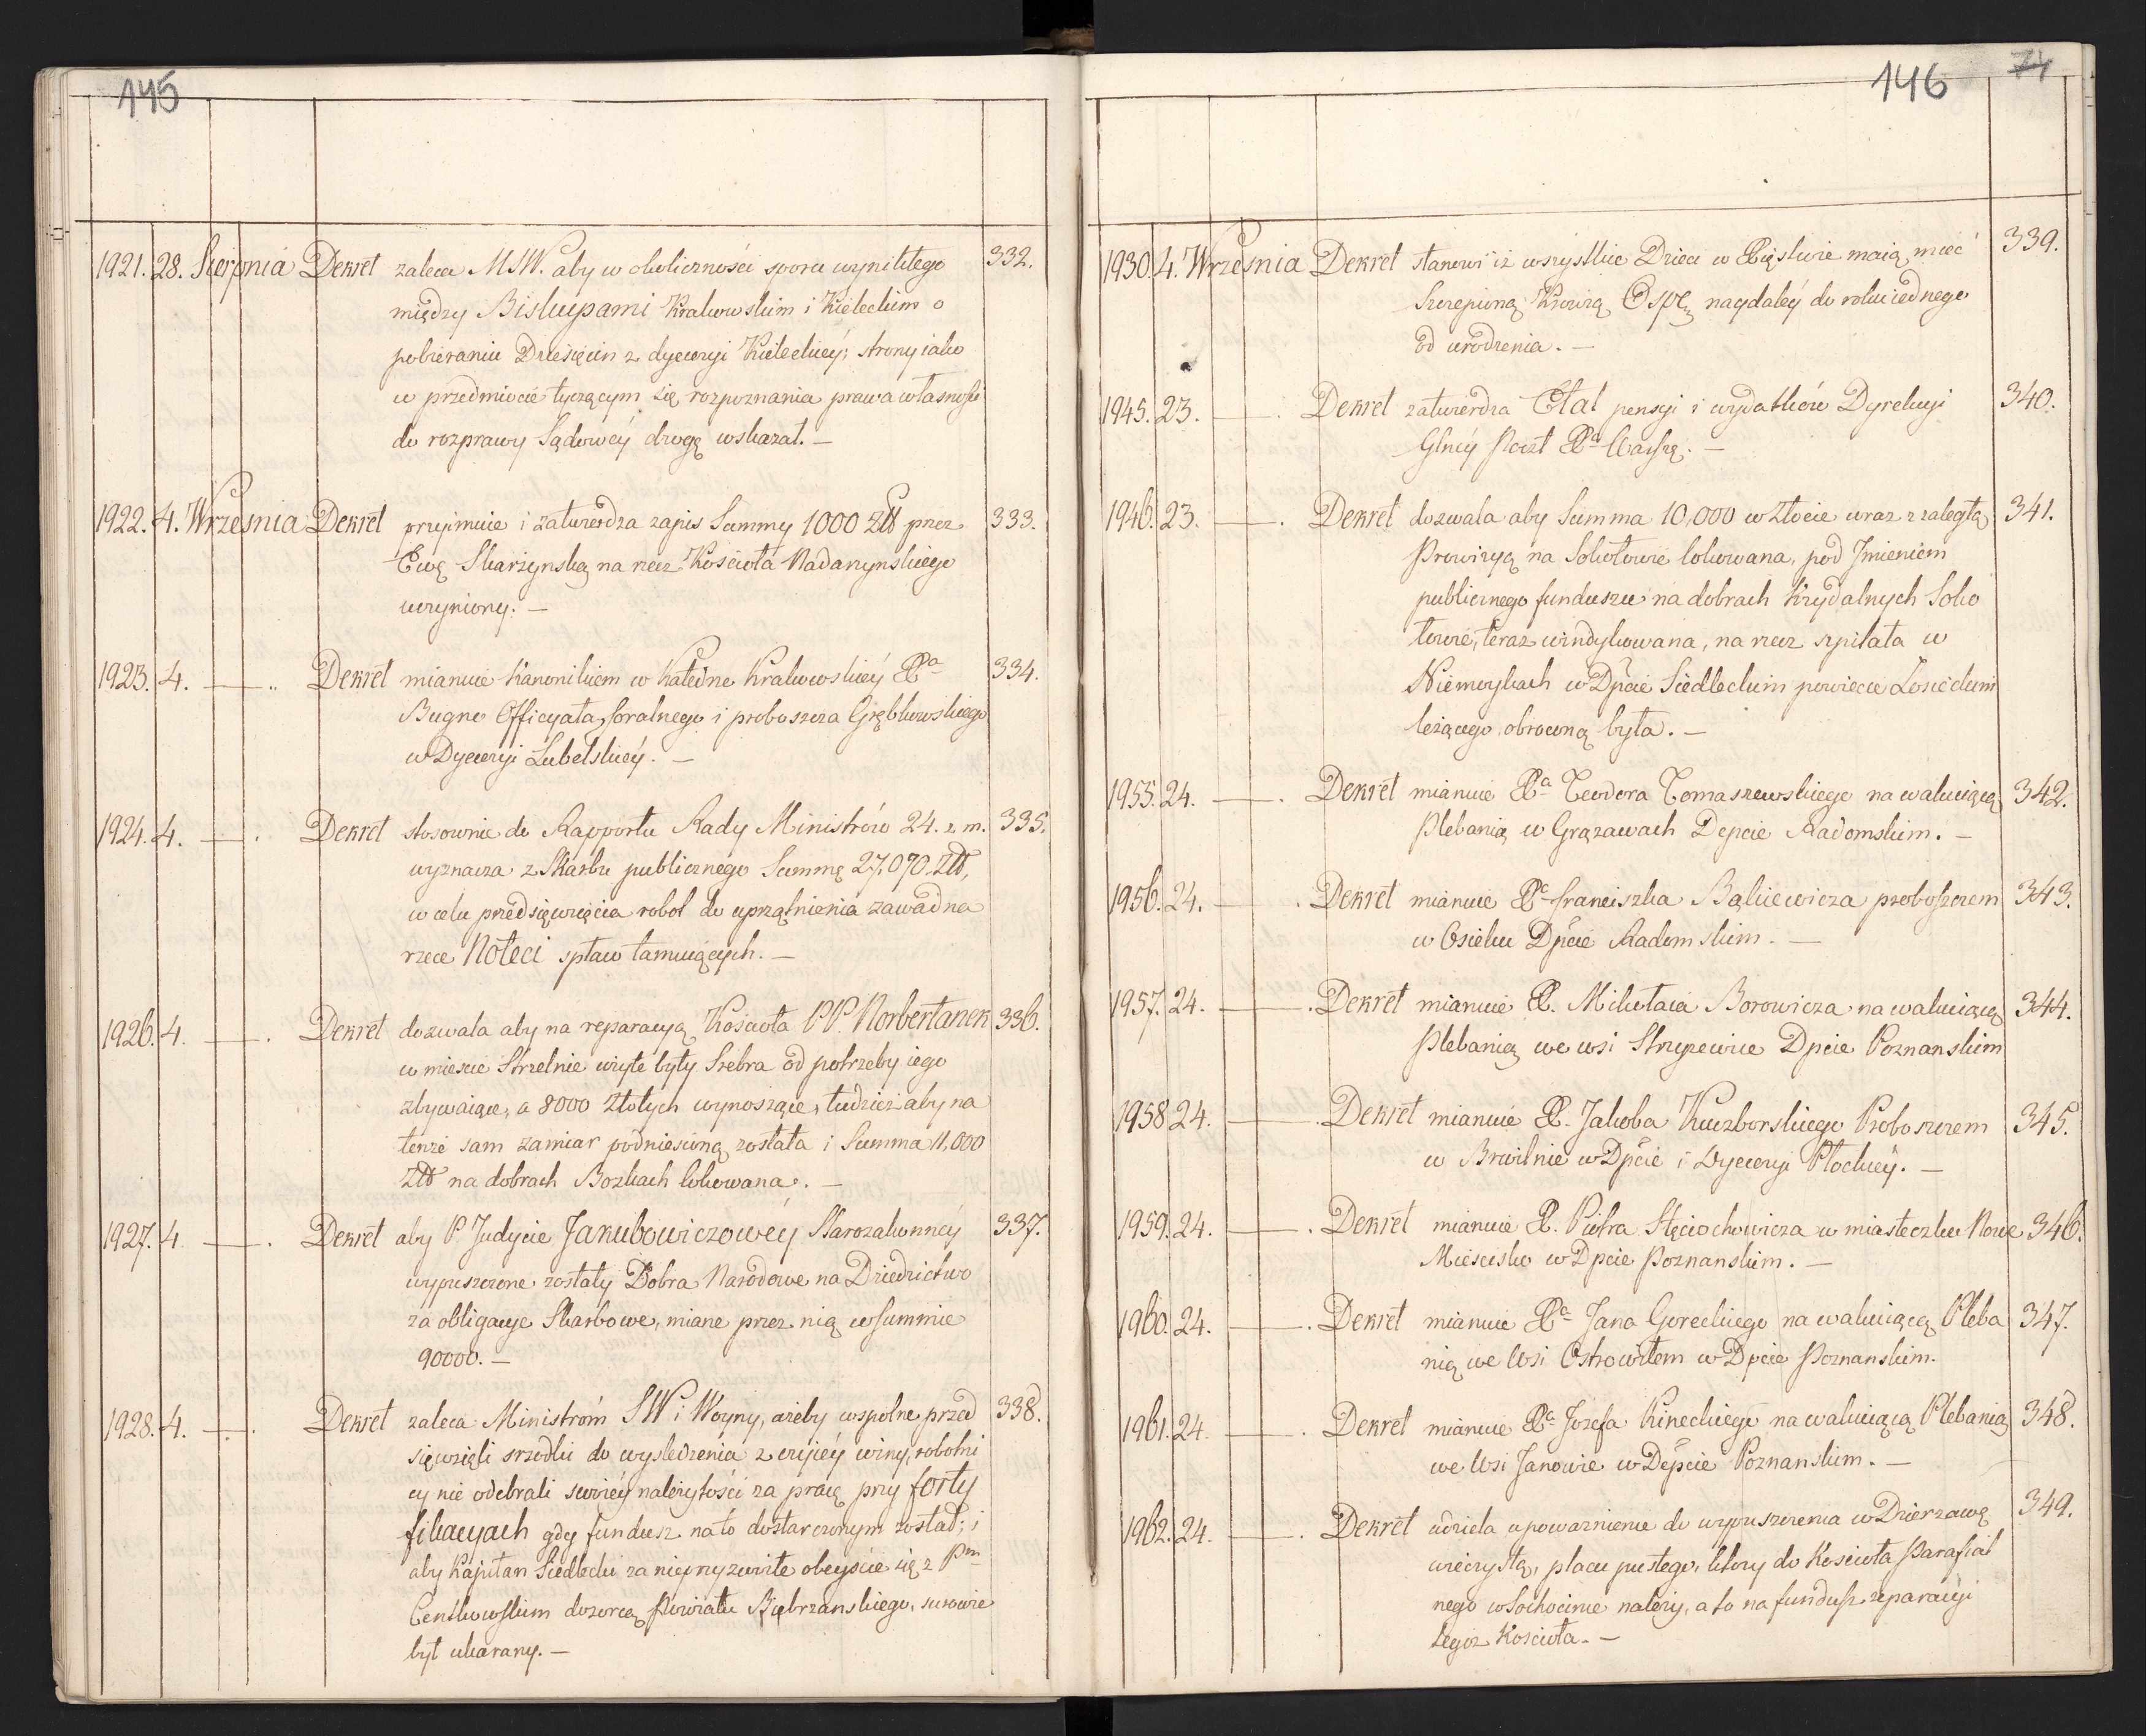 145
1921. 28. Sierpnia Dekret zaleca MSW. aby w okoliczności sporu wynikłego 332.
między Biskupami Krakowskim i Kieleckim o
pobieraniu Dziesięcin z dyecezyi Kieleckiey, strony iako
w przedmiocie tyczącym się rozpoznania prawa własności
do rozprawy Sądowey drogę wskazał. —
1922. 4. Września Dekret przyimuie i zatwierdza zapis Summy 1000 Złł przez 333.
Ewę Skarżynską na rzecz Kościoła Nadarzynskiego
uczyniony. —
1923. 4. —. Dekret mianuie Kanonikiem w Katedrze Krakowskiey Xa 334.
Bugno Officyała foralnego i proboszcza Grębkowskiego
w Dyecezyi Lubelskiey. —
1924. 4. —. Dekret stosownie do Rapportu Rady Ministrów 24. z. m. 335.
wyznacza z Skarbu publicznego Summę 27,070 Złł,
w celu przedsięwzięcia robot do uprzątnienia zawad na
rzece Noteci spław tamuiących. —
1926. 4. —. Dekret dozwala aby na reparacyą Kościoła PP. Norbertanek 336.
w mieście Strzelnie użyte były Srebra od potrzeby iego
zbywaiące, a 8000 Złotych wynoszące, tudzież aby na
tenże sam zamiar podniesioną została i Summa 11,000
Złł na dobrach Bożkach lokowana. —
1927. 4. —. Dekret aby P. Judycie Jakubowiczowéy Starozakonnéy 337.
wypuszczone zostały Dobra Narodowe na Dziedzictwo
za obligacye Skarbowe, miane przez nią w summie
90000. —
1928. 4. —. Dekret zaleca Ministrom SW i Woyny, ażeby wspolne przed 338.
sięwzięli srzodki do wysledzenia z czyiey winy, robotni
cy nie odebrali swoiey należytości za pracę przy forty
fikacyach gdy fundusz na to dostarczonym został; i
aby Kapitan Siedlecki za nieprzyzwoite obeyście się z Pm
Centkowskim dozorcą Powiatu Biebrzanskiego, surowie
był ukarany. —
146 74
1930. 4. Września Dekret stanowi iż wszystkie Dzieci w Xięstwie maią mieć 339.
Szczepioną Krowią Ospę naydaléy do roku iednego
od urodzenia. —
1945. 23. —. Dekret zatwierdza Etat pensyi i wydatków Dyrekcyi 340.
Głney Poczt Xa Warszg. —
1946. 23. —. Dekret dozwala aby Summa 10,000 w Złocie wraz z zaległą 341.
Prowizyą na Sokołowie lokowana, pod Jmieniem
publicznego funduszu na dobrach Krydalnych Soko
łowie, teraz windykowana, na rzecz szpitala w
Niemoykach w Dpcie Siedleckim powiecie Łosickim
leżącego, obroconą była. —
1955. 24. —. Dekret mianuie Xa Teodora Tomaszewskiego na wakuiącą 342.
Plebanią w Grązawach Depcie Radomskim. —
1956. 24. —. Dekret mianuie Xa Franciszka Bąkiewicza proboszczem 343.
w Osieku Dpcie Radomskim. —
1957. 24. —. Dekret mianuie X. Mikołaia Borowicza na wakuiącą 344.
Plebanią we wsi Stryżewice Dpcie Poznanskim
1958 24. —. Dekret mianuie X. Jakoba Kuczborskiego Proboszczem 345.
w Brwilnie w Dpcie i Dyecezyi Płockiey. —
1959. 24. —. Dekret mianuie X. Piotra Stęciochowicza w miasteczku Nowe 346.
Mieścisko w Dpcie Poznanskim. —
1960. 24. —. Dekret mianuie Xa Jana Goreckiego na wakuiącą Pleba 347.
nią we Wsi Ostrowitem w Dpcie Poznanskim.
1961. 24. —. Dekret mianuie Xa Jozefa Kineckiego na wakuiącą Plebanią 348.
we Wsi Janowie w Depcie Poznanskim. —
1962. 24. —. Dekret udziela upoważnienie do wypuszczenia w Dzierzawę 349.
wieczystą, placu pustego, ktory do Kościoła Parafial
nego w Sochocinie należy, a to na fundusz reparacyi
tegoż Kościoła. —